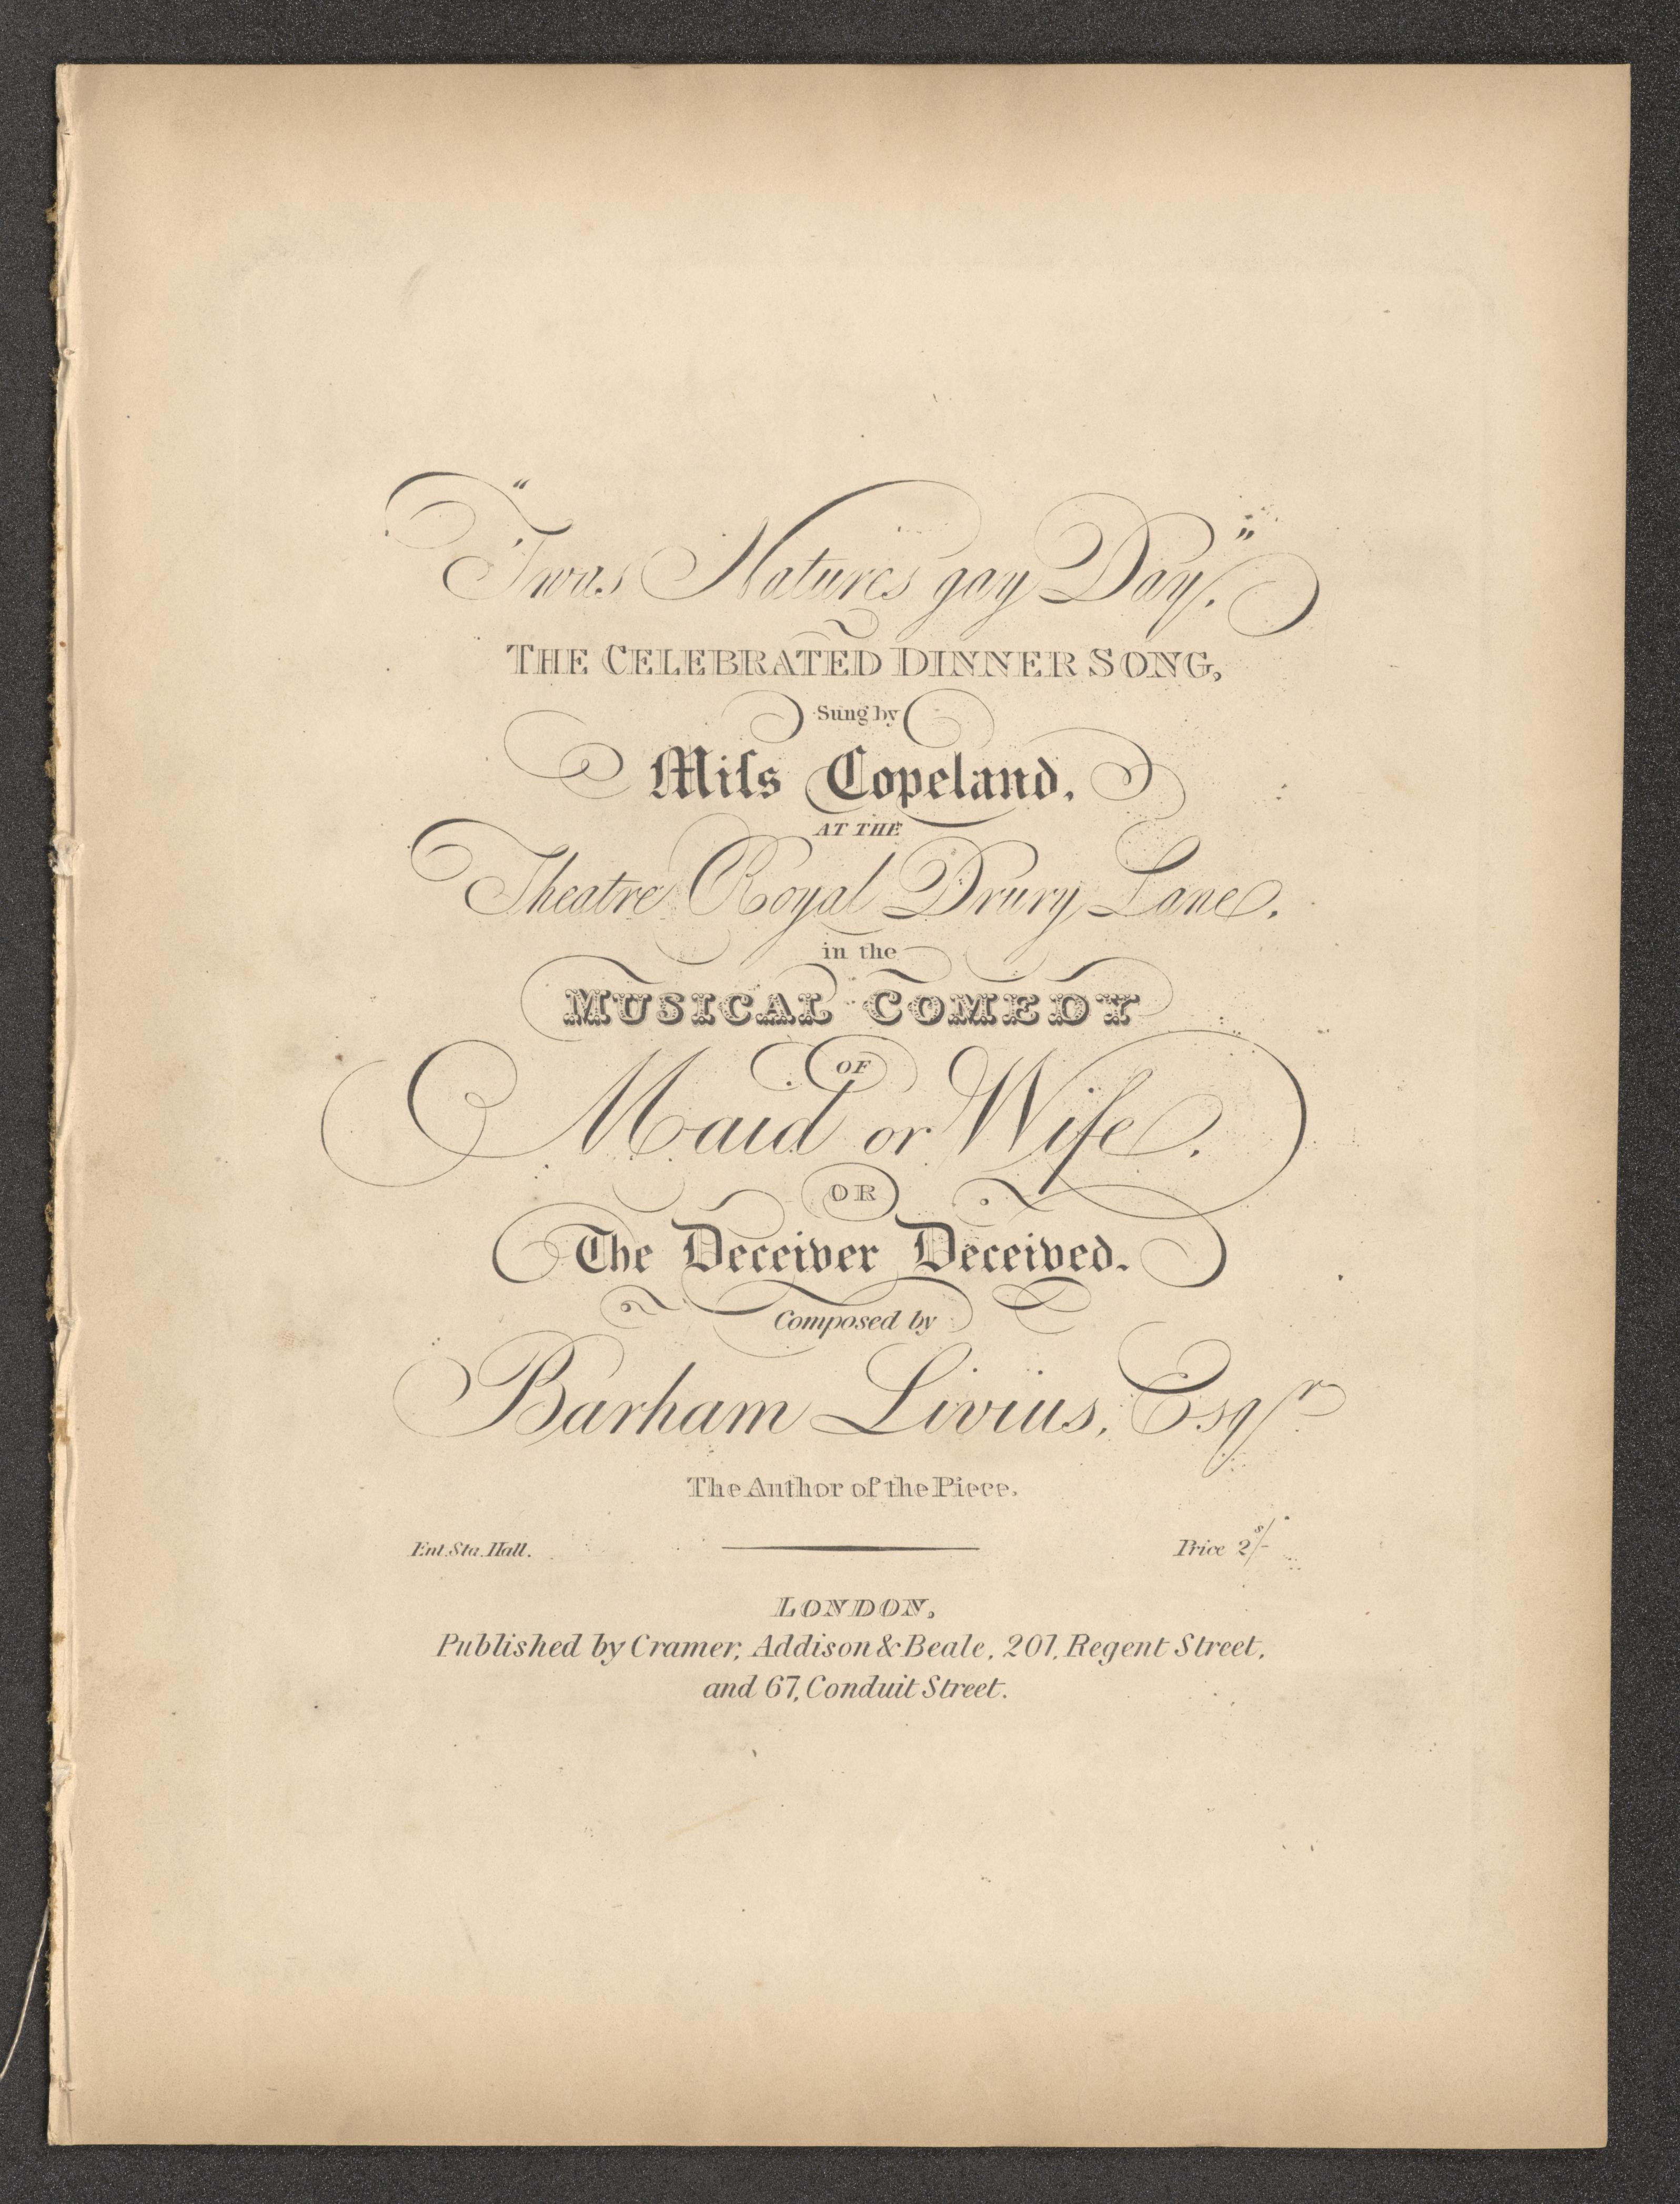 "'Twas Nature's gay Day."
THE CELEBRATED DINNER SONG,
Sung by
Miſs Copeland,
AT THE
Theatre Royal Drury Lane,
in the
MUSICAL COMEDY
OF
Maid or Wife,
OR
The Deceiver Deceived.
Composed by
Barham Livius, Esqr
The Author of the Piece.
Ent. Sta. Hall. Price 2s/-
LONDON,
Published by Cramer, Addison & Beale, 201, Regent Street,
and 67, Conduit Street.